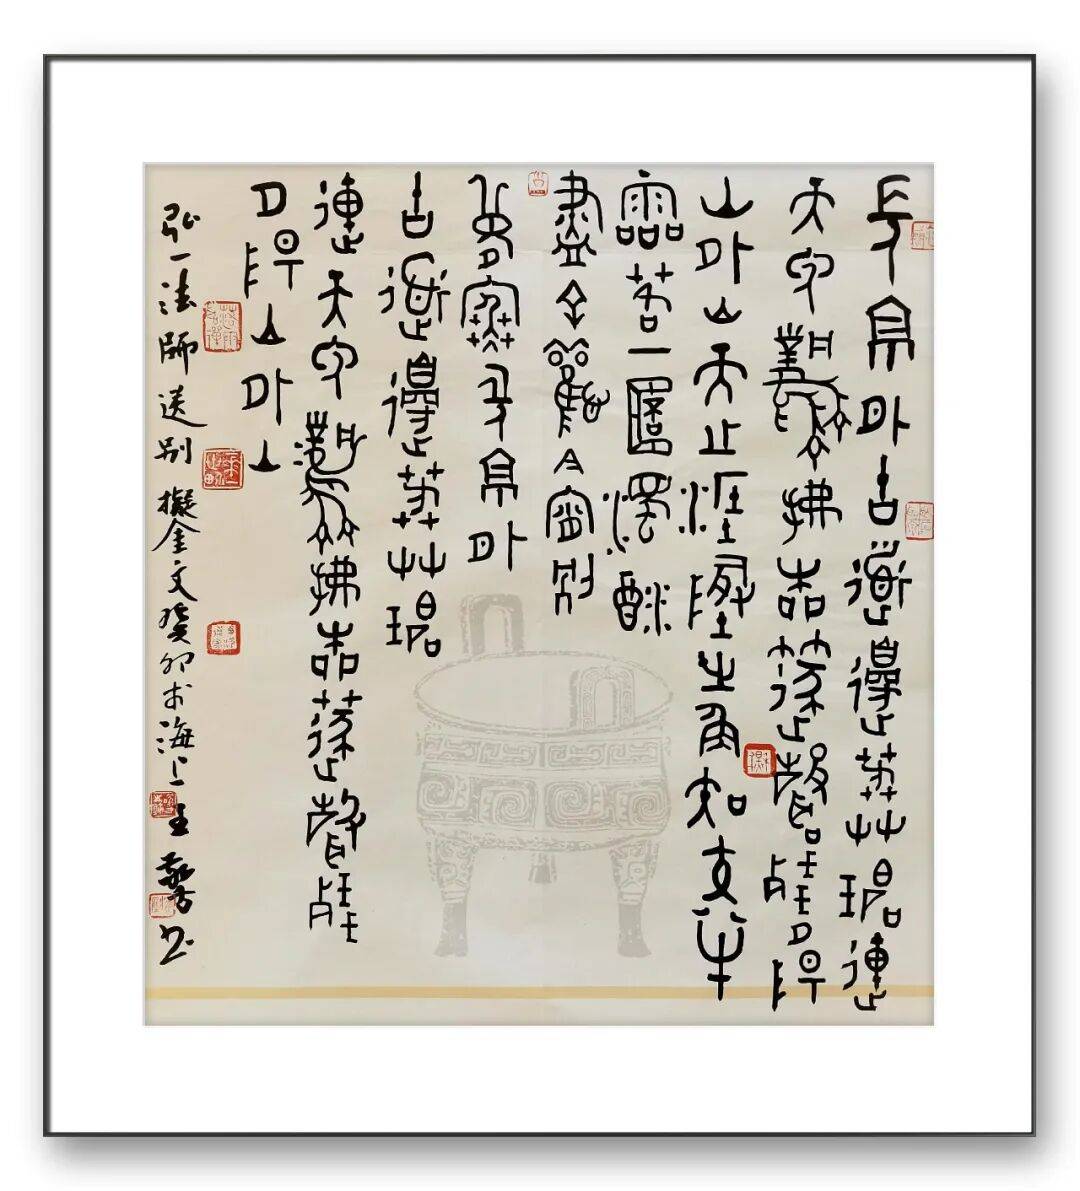 長亭外古道邊芳草碧連
天晚風拂柳笛聲殘夕陽
山外山天之涯地之角知交半
零落一濁酒
盡余歡今宵別
夢寒長亭外
古道邊芳草碧
連天晚風拂柳笛聲殘
夕陽山外山
弘一法師送別擬金文癸卯於海上王書